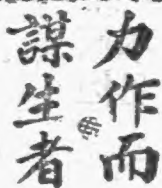 力作而
謀生者